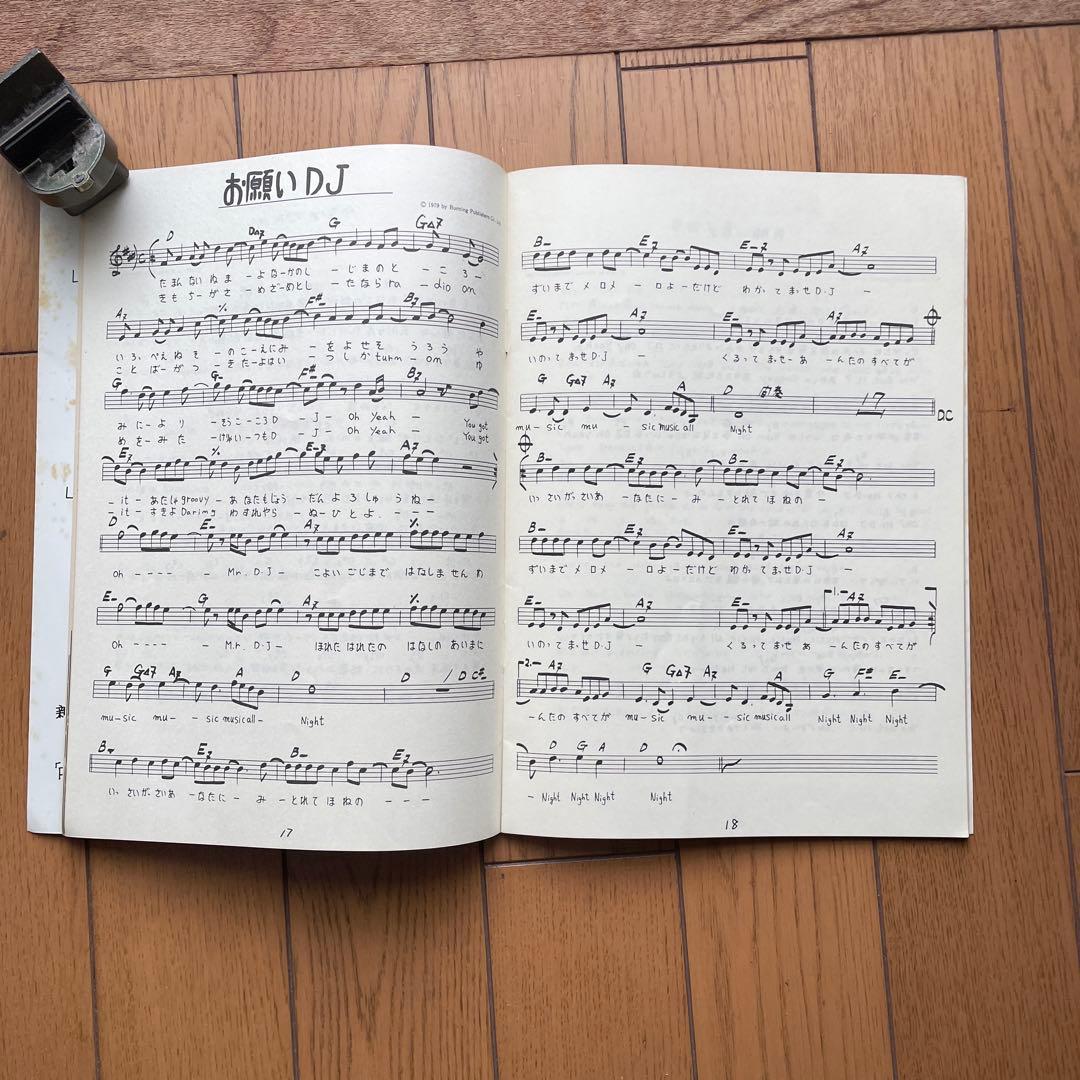 お願い DJ
© 1979 by Burning Publishers Co.
D D△7 G G△7
たまんないぬま - よなーかのし - じまのと - ころ -
きもちーがさ - めざーめとし - たならra - dio on
A7 ٪ F# B7
いろ、ぺえぬき - のこーえにみ - をよせを うろう や
ことばーがつ - きたーよはい - つしかturn - on ゆ
G G- F# B7
みにーより - そうこーころD - J - Oh Yeah - You got
めをみた - けれいーつもD - J - Oh Yeah - You got
E7 ٪ E-7 A7
- it - あたしゃgroovy - あなたもじょう - だん よ ろ しゅ う ね -
- it - すきよ Daring わすれやら - ぬ - ひ と よ - - -
D E- A7 ٪
Oh - - - - - Mr. D・J - こよい ごじまで はなしま せん わ
E- G A7 ٪
Oh - - - - - Mr. D・J - ほれた はれたの はなしの あいまに
G G△7 A7 A D D / D C#-
mu-sic mu- -sic musicall- Night
B- E7 B- E7
いっさいがっさいあ -なたに- み -とれて ほ ねの - - -
17
B- E7 E-7 A7
ずいまで メロメ -ロよーだけど わかってまっせD・J -
E- A7 E- A7
いのってまっせD・J - くるってまっせーあ -んたのすべてが
G G△7 A7 A D 間奏 17
mu-sic mu- -sic music all Night DC
B- E7 B- E7
いっさいがっさいあ -なたに- み -とれて ほ ねの -
B- E7 E- A7
ずいまで メロメ -ロよーだけど わかってまっせD・J -
E- A7 E- 1.- A7
いのってまっせD・J - くるってまっせ あ -んたの すべてが
2.- A7 G G△7 A7 A G F# E-
-んたの すべてが mu-sic mu- -sic musicall Night Night Night
D G A D
- Night Night Night Night
18